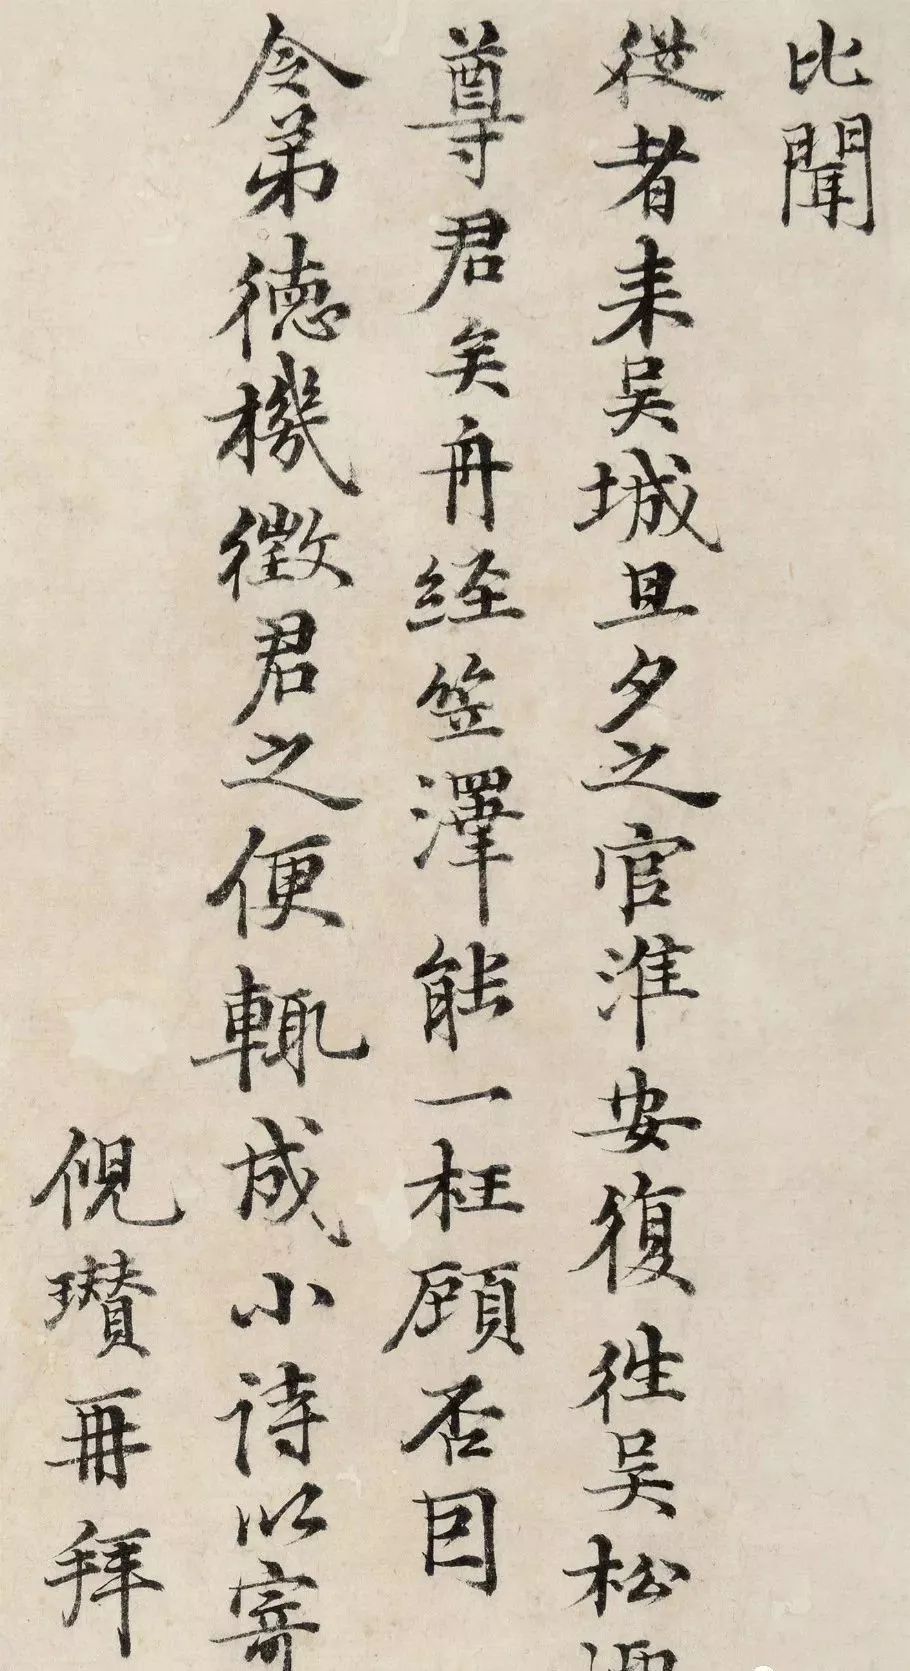 比聞
從者来吴城旦夕之官淮安復往吴松
尊君矣舟経笠澤能一枉顾否因
令弟徳機徴君之便輙成小詩以寄
倪瓚再拜